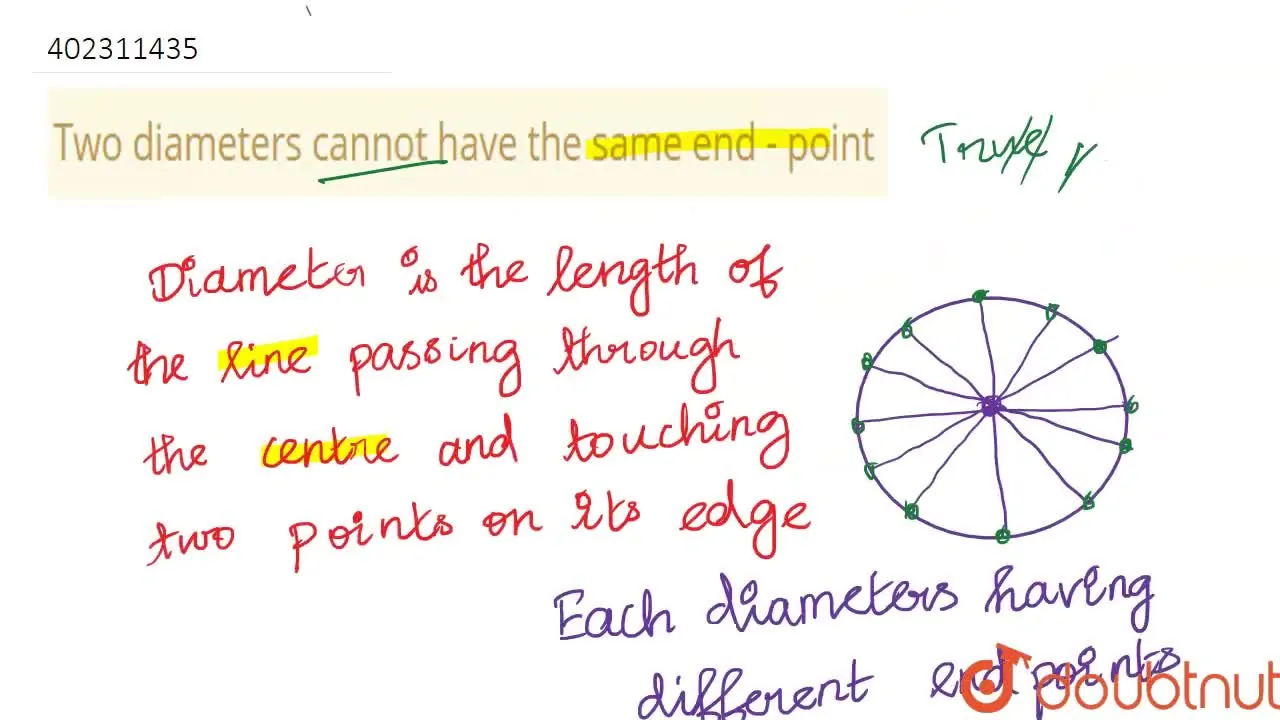 402311435
Two diameters cannot have the same end - point
True
Diameter is the length of
the line passing through
the centre and touching
two points on its edge
Each diameters having
different end points
doubtnut